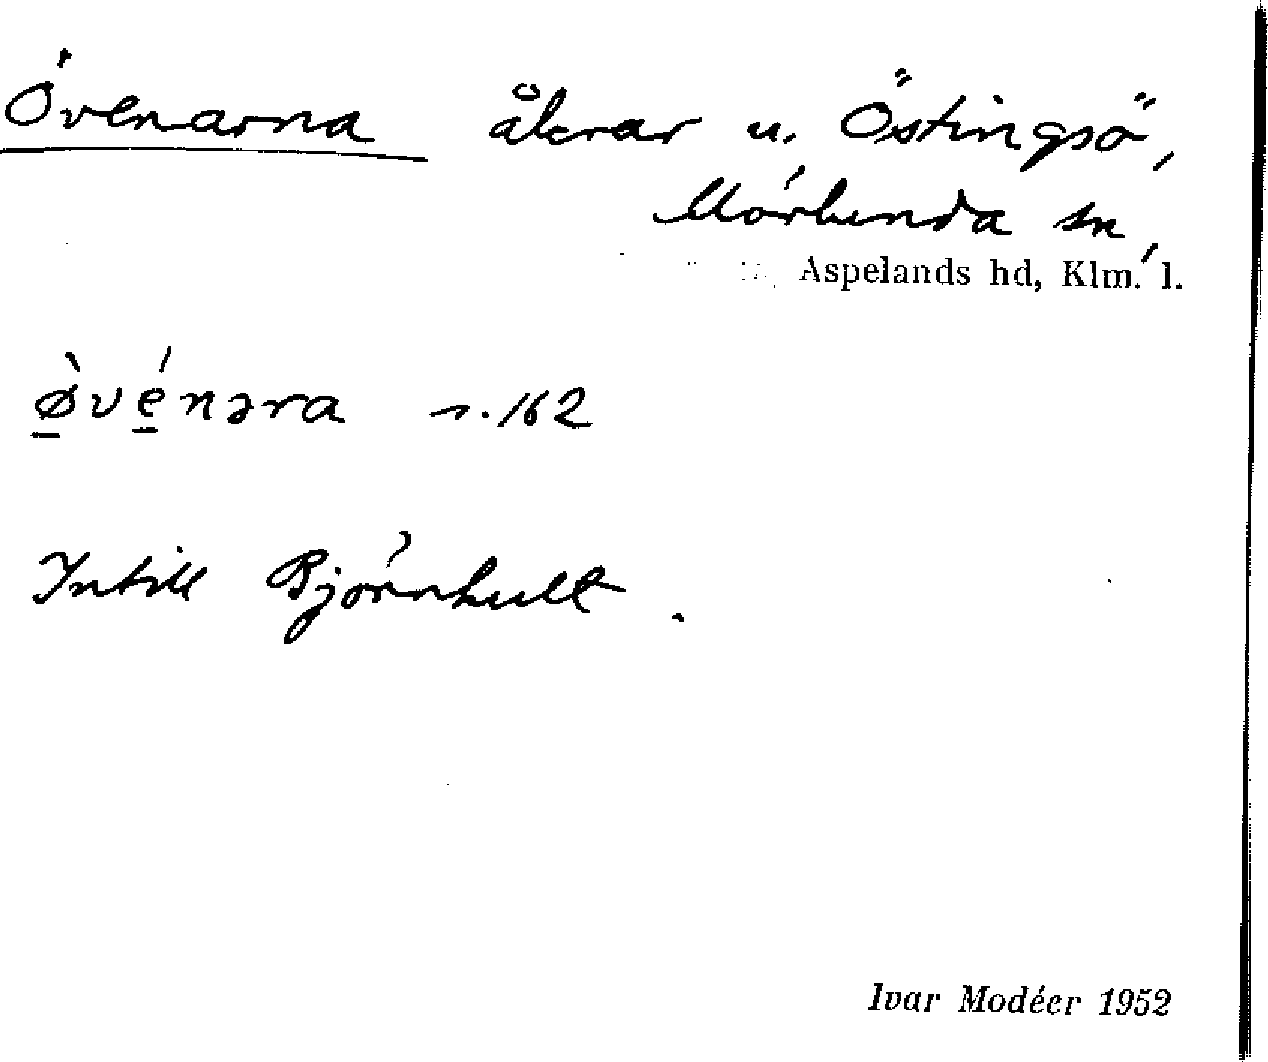 Övenarna åkrar u. Östingsö,
Mörlunda sn,
Aspelands hd, Klm. l.
ø̠̀vé̠nəra s. 162
Intill Björnhult.
Ivar Modéer 1952